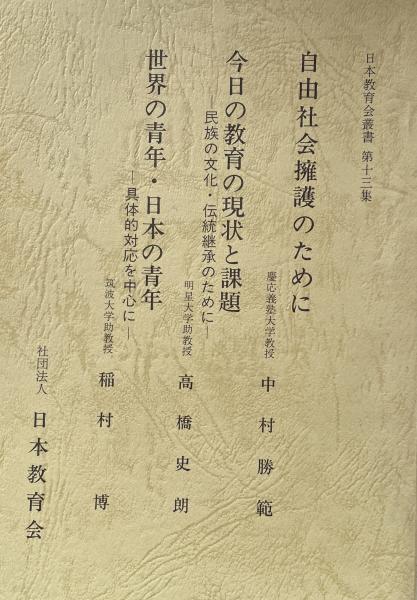 日本教育会叢書 第十三集
自由社会擁護のために
慶応義塾大学教授 中村勝範
今日の教育の現状と課題
―民族の文化・伝統継承のために―
明星大学助教授 高橋史朗
世界の青年・日本の青年
―具体的対応を中心に―
筑波大学助教授 稲村博
社団法人 日本教育会